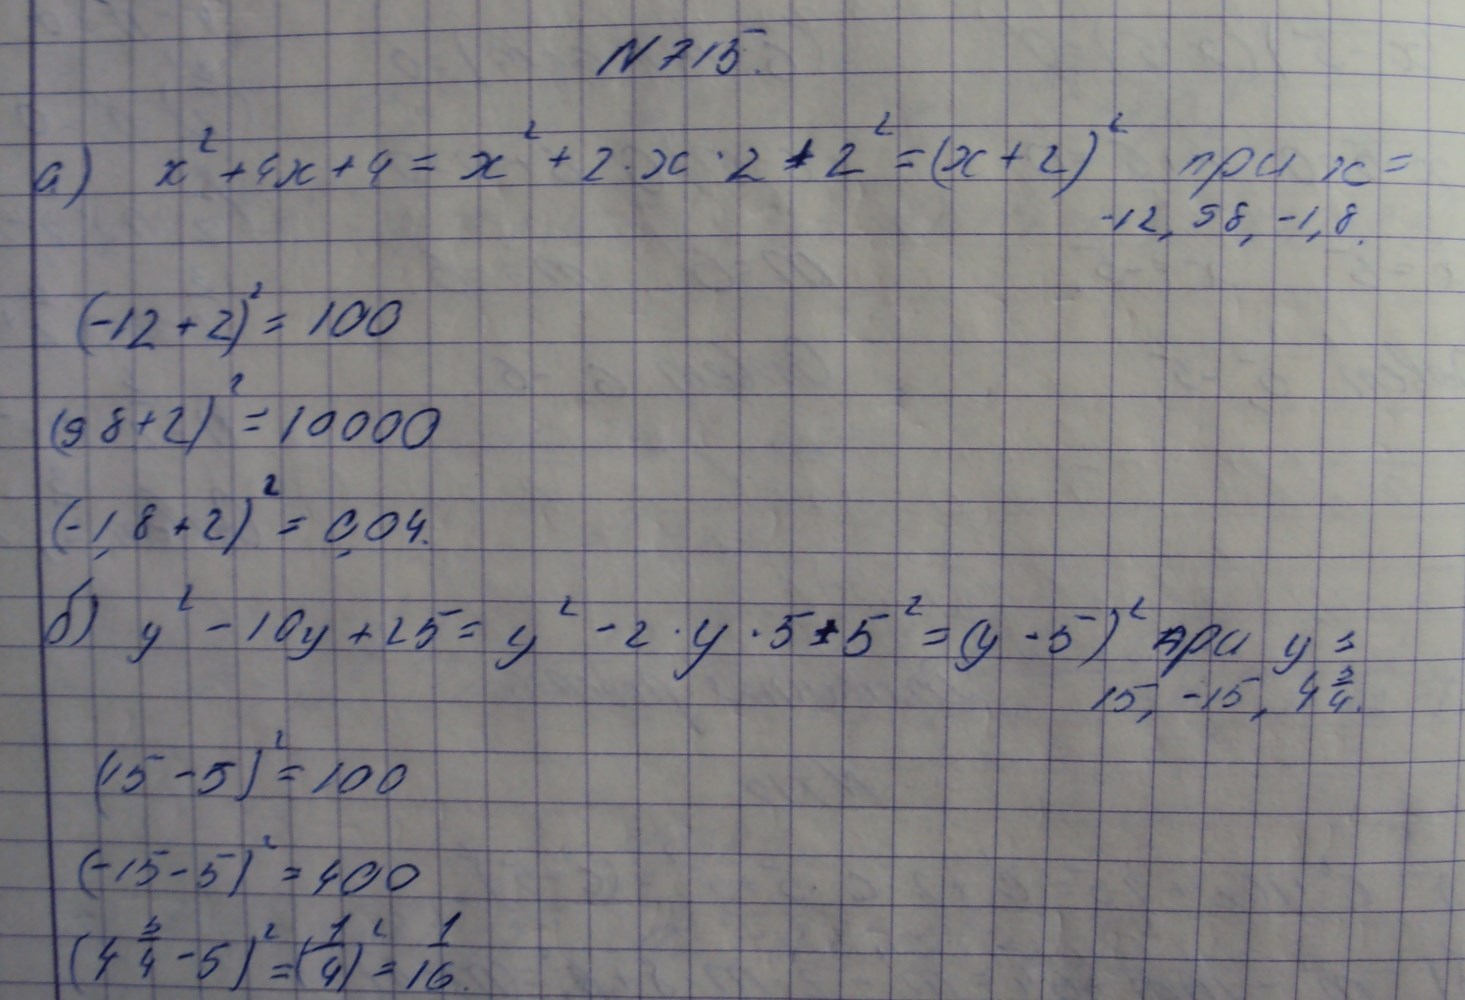 N 715.
а) x² + 4x + 4 = x² + 2·x·2 + 2² = (x+2)² при x =
-12, 98, -1,8.
(-12+2)² = 100
(98+2)² = 10000
(-1,8+2)² = 0,04.
б) y² - 10y + 25 = y² - 2·y·5 + 5² = (y-5)² при y =
15, -15, 4 3/4.
(15-5)² = 100
(-15-5)² = 400
(4 3/4 - 5)² = (1/4)² = 1/16.